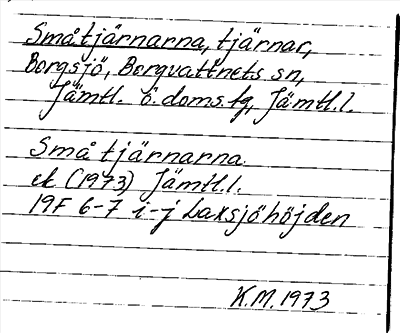 Småtjärnarna, tjärnar,
Borgsjö, Borgvattnets sn,
Jämtl. ö. doms.tg, Jämtl.l.
Småtjärnarna
ek (1973) Jämtl.l.
19F 6-7 i-j Laxsjöhöjden
K.M. 1973